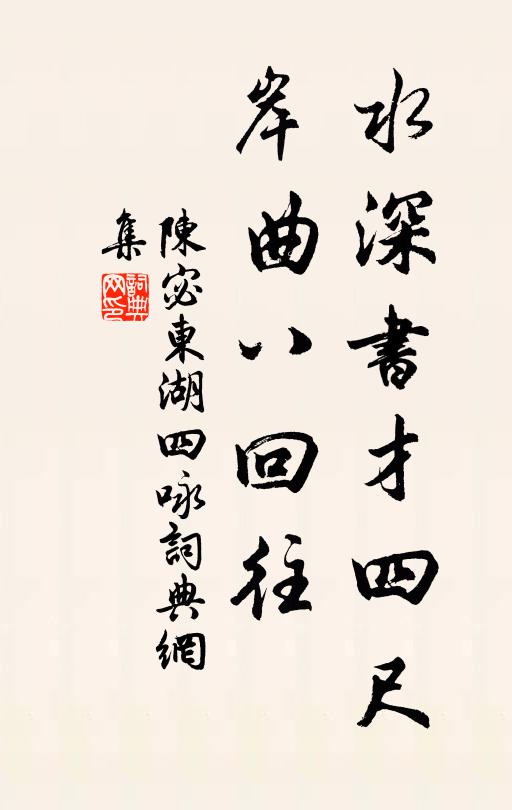 水深書才四尺
岸曲八回往
陳宓東湖四咏詞典網
集
詞典
网印